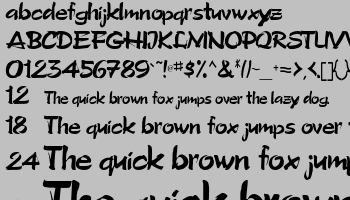 abcdefghijklmnopqrstuvwxyz
ABCDEFGHIJKLMNOPQRSTUVW
0123456789`~!@#$%^&*()-_+=>,<.[]{}
12 The quick brown fox jumps over the lazy dog.
18 The quick brown fox jumps over
24 The quick brown fox jump
The quick brown